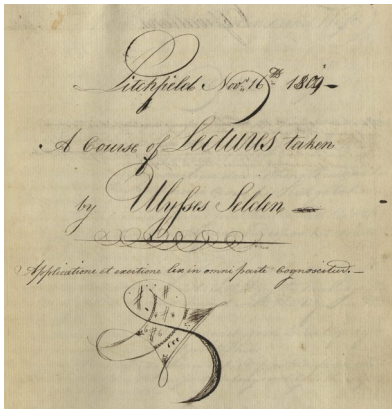 Litchfield Nov.r 16th 1809
A Course of Lectures taken
by Ulysses Selden
Applicatione et exertione lex in omni parte cognoscitur.